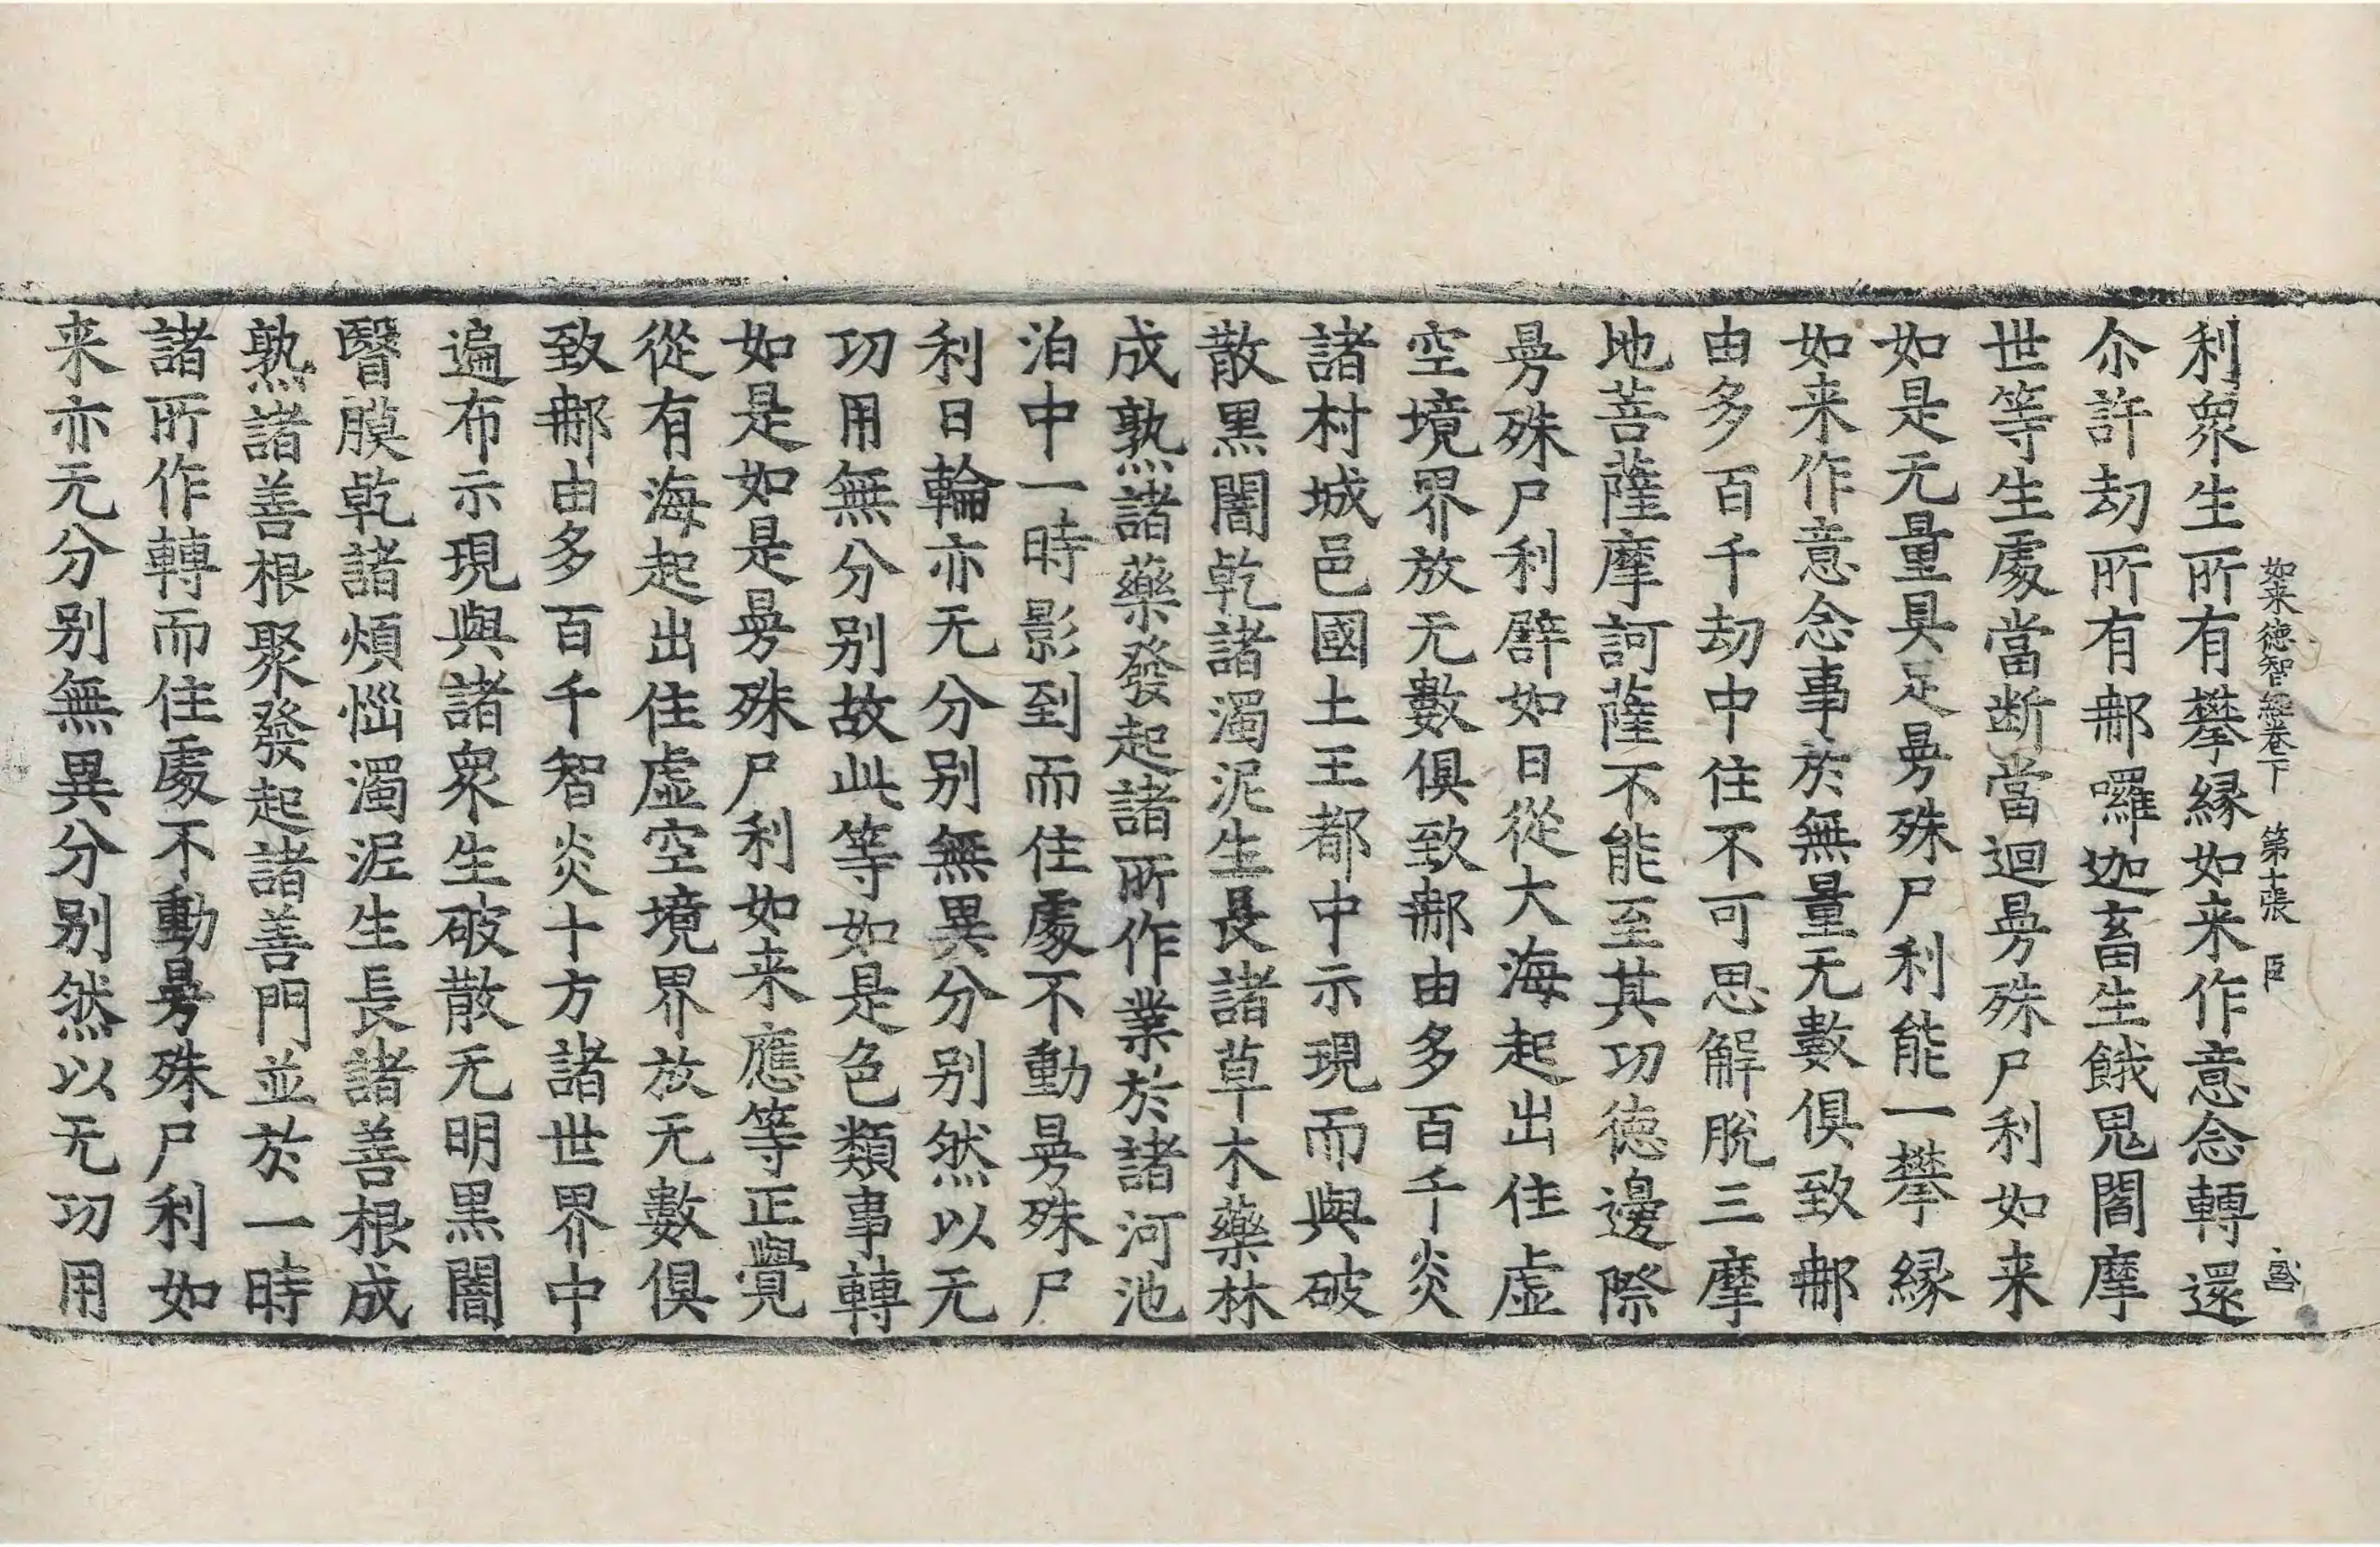 如来徳智經卷下　第十張　臣
利衆生所有攀縁如来作意念轉還
尒許劫所有郍囉迦畜生餓鬼閻摩
世等生處當断當迴㬅殊尸利如来
如是无量具足㬅殊尸利能一攀縁
如来作意念事於無量无數俱致郍
由多百千劫中住不可思解脫三摩
地菩薩摩訶薩不能至其功徳邊際
㬅殊尸利辟如日從大海起出住虚
空境界放无數俱致郍由多百千炎
諸村城邑國土王都中示現而與破
散黒闇乾諸濁泥生長諸草木藥林
成熟諸藥發起諸所作業於諸河池
泊中一時影到而住處不動㬅殊尸
利日輪亦无分别無異分别然以无
功用無分别故此等如是色類事轉
如是如是㬅殊尸利如来應等正覺
從有海起出住虚空境界放无數俱
致郍由多百千智炎十方諸世界中
遍布示現與諸衆生破散无明黒闇
瞖膜乾諸煩惱濁泥生長諸善根成
熟諸善根聚發起諸善門並於一時
諸所作轉而住處不動㬅殊尸利如
来亦无分别無異分别然以无功用